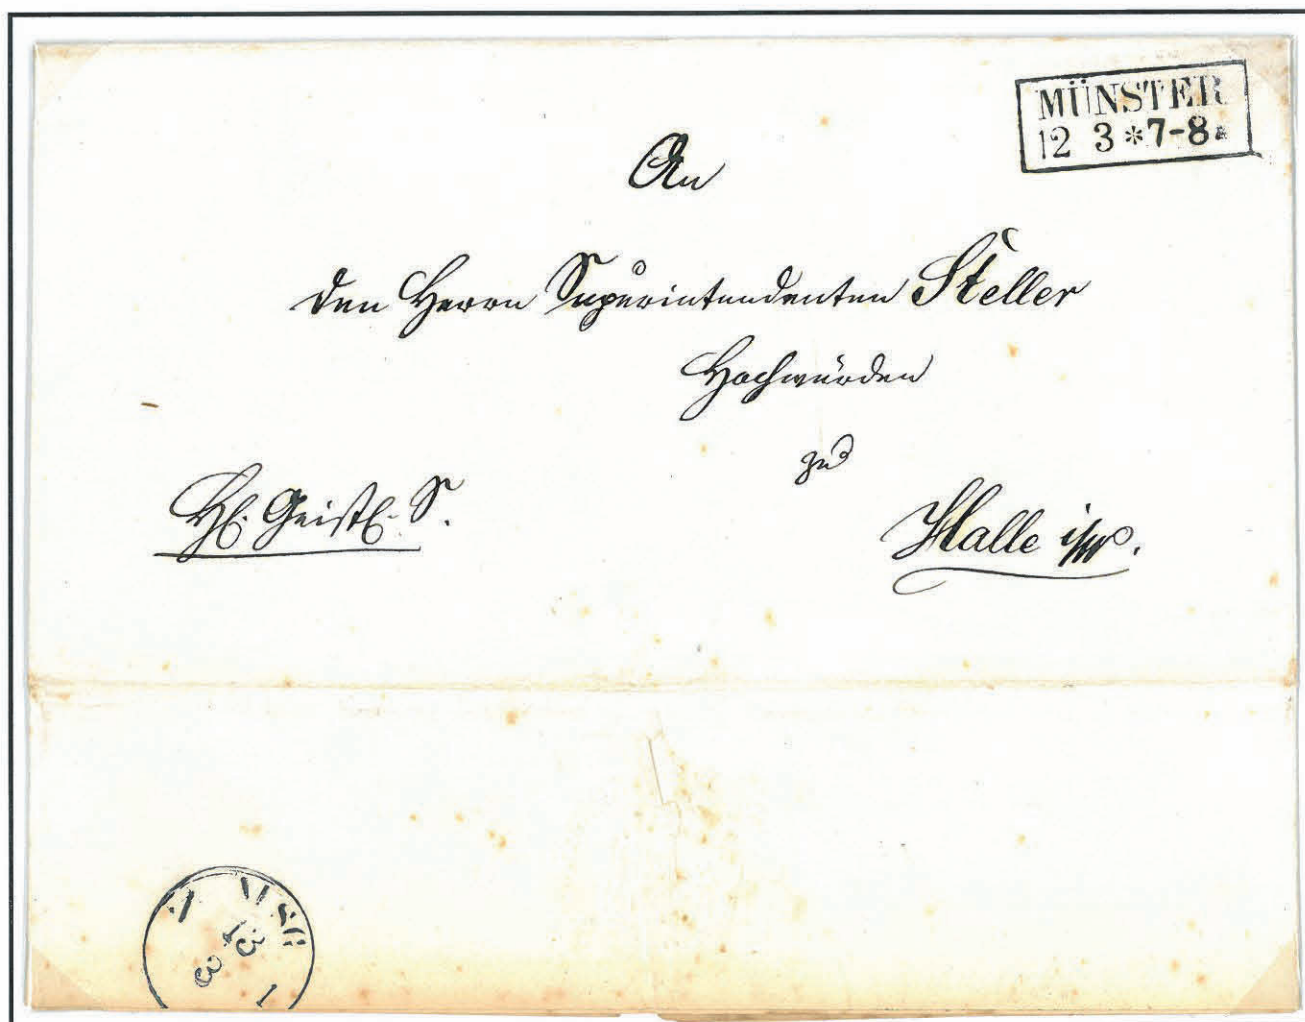 MÜNSTER
12 3 * 7-8
An
den Herrn Superintendenten Steller
Hochwürden
zu
Halle i/W.
AUSG
13
3
1